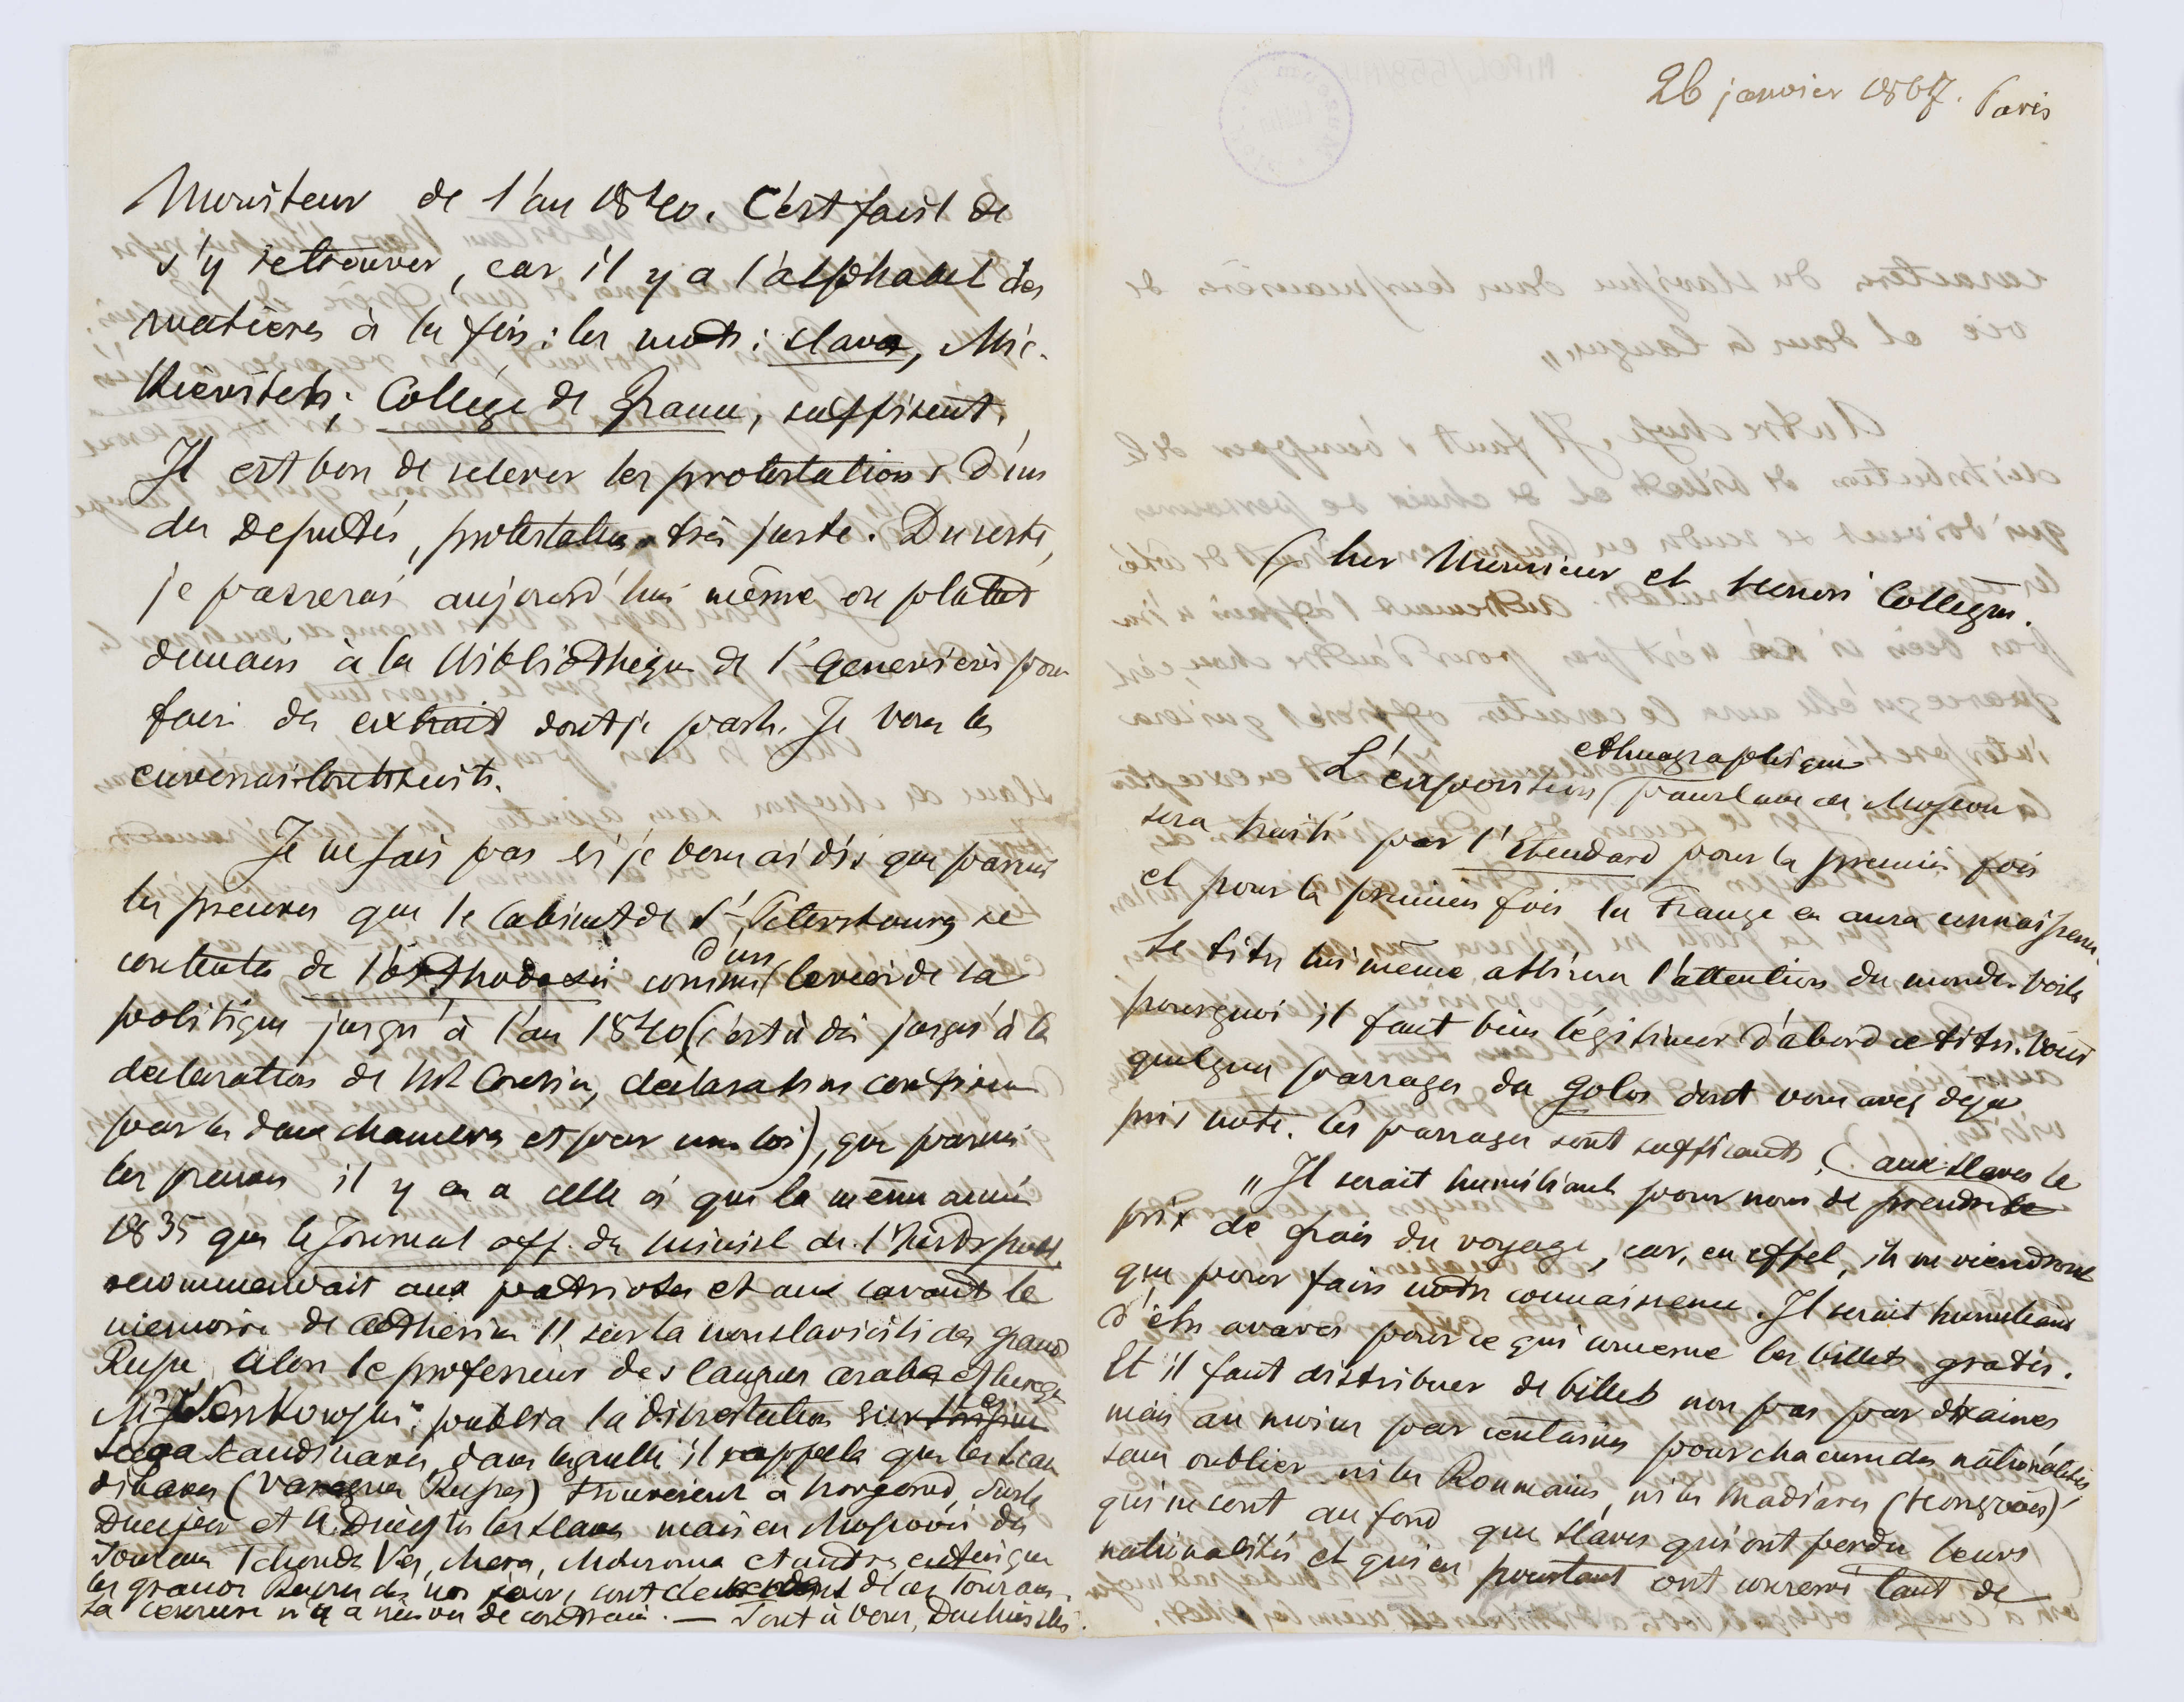 26 janvier 1867. Paris
Cher Monsieur et honoré Collègue.
ethnographique
L'exposition panslave de Moscou
sera traité par l'Etendard pour la première fois
et pour la première fois la France en aura connaissance.
Le titre lui même attirera l'attention du monde. Voilà
pourquoi il faut bien légitimer d'abord ce titre. Voici
quelques passages du Golos dont vous avez déjà
pris note. Ces passages sont suffisants (aux slaves le
"Il serait humiliant pour nous de prendre le
prix de frais du voyage, car, en effet, ils ne viendront
que pour faire notre connaissance. Il serait humiliant
d'être avares pour ce qui concerne les billets gratis.
Et il faut distribuer de billets non pas par dixaines
mais au moins par centaines pour chacune des nationalités
sans oublier ni les Roumains, ni les Madiares (Hongrois)
qui ne sont au fond que slaves qui ont perdu leurs
nationalités et qui en pourtant ont conservé tant de
Moniteur de l'an 1840. C'est facil de
s'y retrouver, car il y a l'alphabet des
matières à la fin: les mots: slave, Mic-
kiewicz; Collège de France, suffisent.
Il est bon de relever les protestations d'un
des Deputés, protestation très juste. Du reste,
je passerai aujourd'hui même ou plutot
demain à la Bibliothèque de Ste Geneviève pour
faire des extrait dont je parle. Je vous les
enverrai tout de suite.
Je ne sais pas si je vous ai dis que parmi
les preuves que le Cabinet de St. Petersbourg se
d'un
contenta de l'orthodoxie comme levier de sa
politique jusqu'à l'an 1840 (c'est à dire jusqu'à la
déclaration de Mr Cousin, déclaration confirmée
par les deux chambres et par une loi), que parmi
les preuves il y en a celle ci que la même année
1835 que le Journal off. du Minist. de l'Inst. publ.
recommandait aux patriotes et aux savants le
memoire de Catherine II sur la nonslavicité des grands
Russes, alors le professeur des langues arabe et turque
Mr Senkowski publia la dissertation sur les
saga scandinaves, dans laquelle il rappela que les Scan
dinaves (Varegues Russes) trouvèrent à Novgorod, sur le
Dnieper et le Dniester les slaves mais en Moscovie des
Touraniens Tchoudes, Ves, Mera, Mouroma et autres, enfin que
les grands Russes de nos jours sont descendants de ces Tourans.
La censure n'y a rien vu de contraire. — Tout à vous, Duchinski.